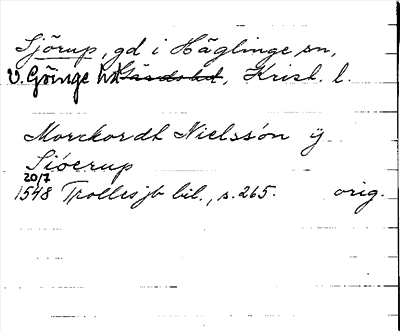 Sjörup, gd i Häglinge sn,
V. Göinge hd Gärds hd, Krist. l.
Morckordt Nielssøn ÿ
Siöerup
20/7
1548 Trollesjb bil., s. 265. orig.